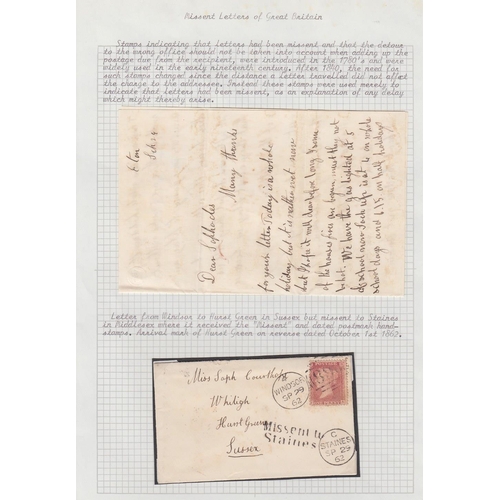 Missent Letters of Great Britain
Stamps indicating that letters had been missent and that the detour
to the wrong office should not be taken into account when adding up the
postage due from the recipient, were introduced in the 1780's and were
widely used in the early nineteenth century. After 1840, the need for
such stamps changed since the distance a letter travelled did not affect
the charge to the addressee. Instead these stamps were used merely to
indicate that letters had been missent, as an explanation of any delay
which might thereby arise.
Eton
Dear Sophocles
Many thanks
for your letter Today is a whole
holiday but it is rather wet now
but I hope it will clear before long
of the houses fires are begun must they not
be hot. We have the gas lighted at 5
school now Lock up is at 6 on whole
school days and 6.15 on half holidays
Letter from Windsor to Hurst Green in Sussex but missent to Staines
in Middlesex where it received the "Missent" and dated postmark hand-
stamps. Arrival mark of Hurst Green on reverse dated October 1st 1862.
Miss Soph Courthope
Whiligh
Hurst Green
Sussex
WINDSOR
SP 29
62
Missent to
Staines
C
STAINES
SP 29
62